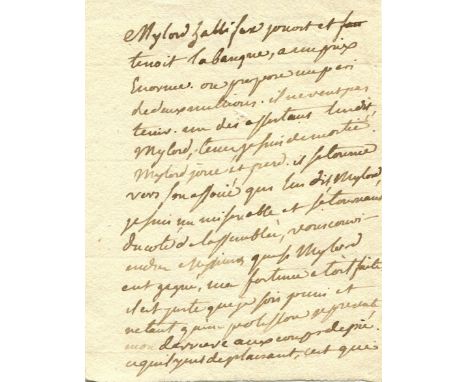 Mylord hallifax jouoit et
tenoit la banque, a un prix
Enorme. on propose un pari
de deux millions. il ne veut pas
tenir. un des assistans lui dit
Mylord, tenez je suis de moitié.
Mylord joue et perd. il se tourne
vers son associé qui lui dit, Mylord,
je suis un miserable et se tournant
du coté de l'assemblée, vous convi-
endrez Messieurs que si Mylord
eut gagné, ma fortune etoit faite
il est juste que je sois puni et
me
mon derriere aux coups de pié.
ce qu'il y eut de plaisant, c'est que